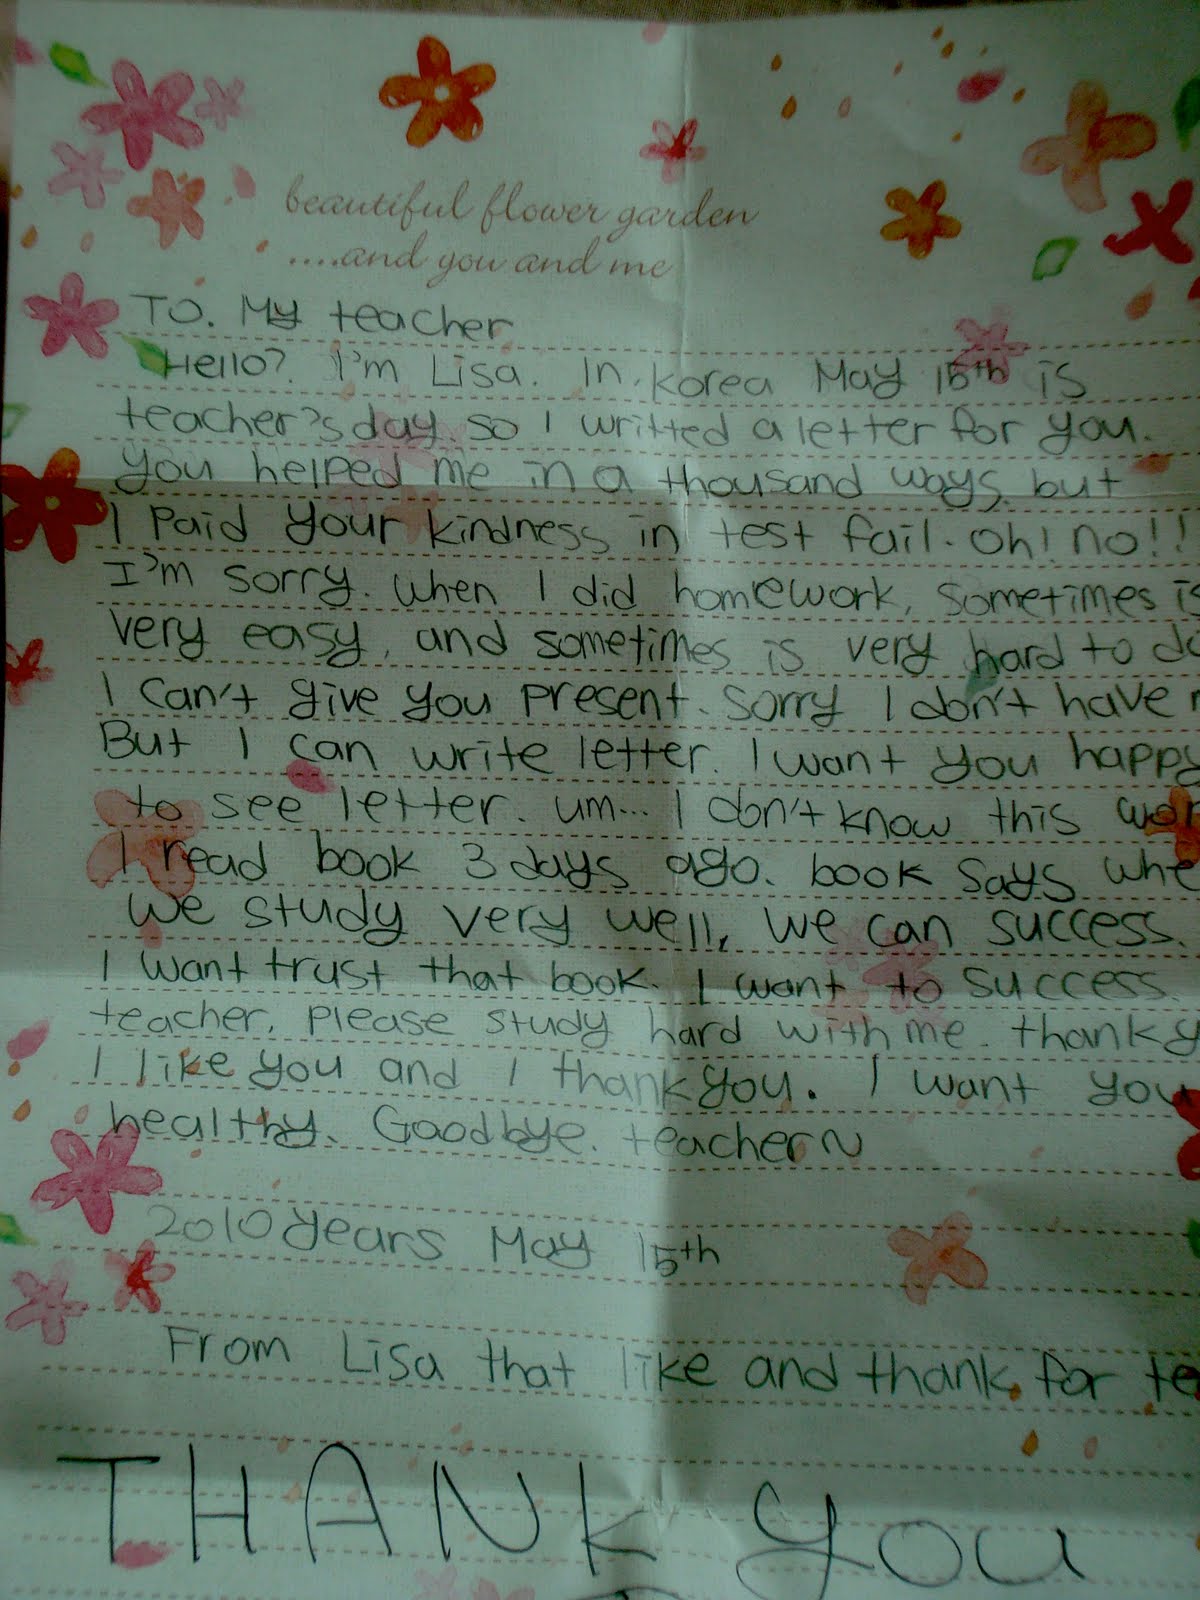 beautiful flower garden
....and you and me
TO. My teacher
Hello? I'm Lisa. In, korea May 15th is
teacher's day. so I writted a letter for you.
you helped me in a thousand ways. but
I Paid your kindness in test fail. oh! no!!
I'm sorry. when I did homework, sometimes is
very easy, and sometimes is very hard to do
I can't give you present. sorry I don't have
But I can write letter. I want you happy
to see letter. um... I don't know this
I read book 3 days ago. book says
we study very well, we can success.
I want trust that book. I want to success.
teacher, please study hard with me. thank y
I like you and I thank you. I want you
healthy. Goodbye. teacher~
2010 years May 15th
From Lisa that like and thank for te
THANK you